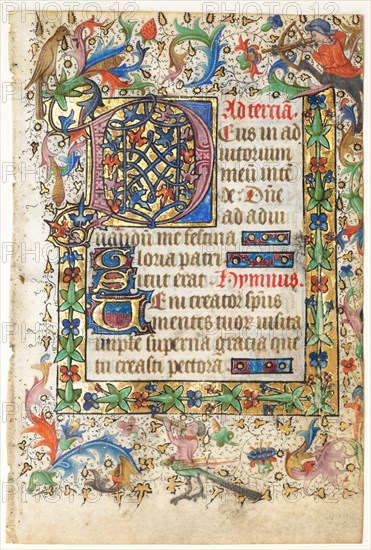 Ad terciã.
Deus in ad
iutorium
meũ intẽ
de: Dñe
ad adiu
uandũ me festina
Gloria patri
Sicut erat Hymnus.
Veni creator spũs
mentes tuorũ uisita
imple superna gratia que
tu creasti pectora